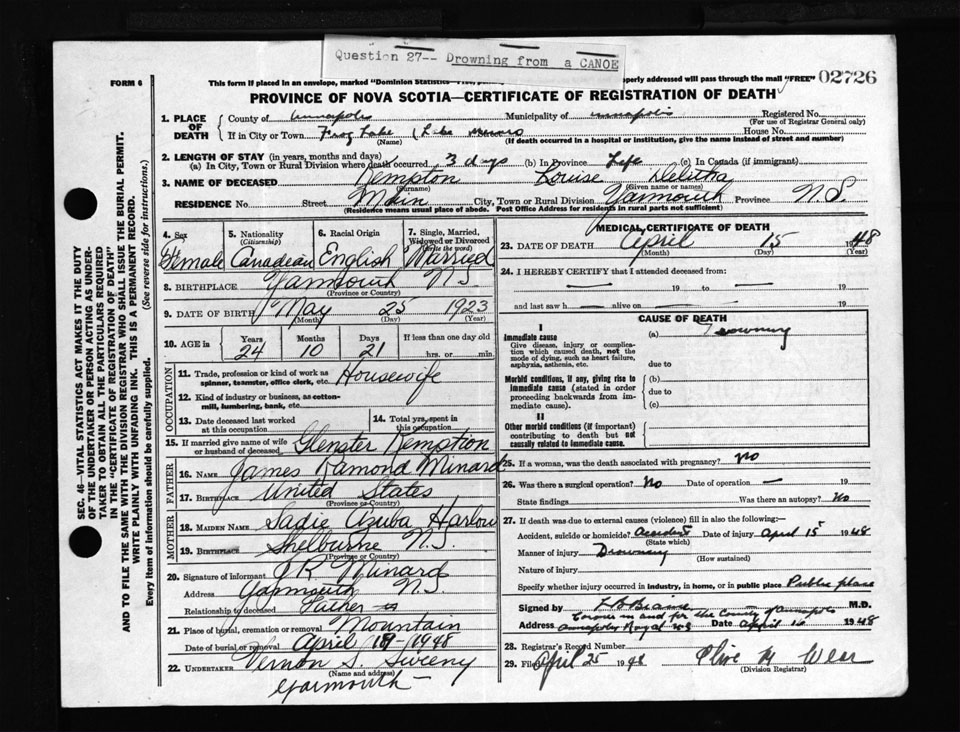 Question 27-- Drowning from a CANOE
FORM 6
This form if placed in an envelope, marked "Dominion Statistics properly addressed will pass through the mail "FREE" 02726
PROVINCE OF NOVA SCOTIA—CERTIFICATE OF REGISTRATION OF DEATH
1. PLACE OF DEATH
County of Annapolis Municipality of Annapolis Registered No.
(For use of Registrar General only)
If in City or Town Lake House No.
(Name) (If death occurred in a hospital or institution, give the name instead of street and number)
2. LENGTH OF STAY (in years, months and days)
(a) In City, Town or Rural Division where death occurred 3 days (b) In Province Life (c) In Canada (if immigrant)
3. NAME OF DECEASED Kempton Louise Delitha
(Surname) (Given name or names)
RESIDENCE No. Street Main City, Town or Rural Division Yarmouth Province N.S.
(Residence means usual place of abode. Post Office Address for residents in rural parts not sufficient)
4. Sex Female
5. Nationality (Citizenship) Canadian
6. Racial Origin English
7. Single, Married, Widowed or Divorced (Write the word) Married
8. BIRTHPLACE Yarmouth N S
(Province or Country)
9. DATE OF BIRTH May 25 1923
(Month) (Day) (Year)
10. AGE in Years 24 Months 10 Days 21 If less than one day old
hrs. or min.
OCCUPATION
11. Trade, profession or kind of work as spinner, teamster, office clerk, etc. Housewife
12. Kind of industry or business, as cotton-mill, lumbering, bank, etc.
13. Date deceased last worked at this occupation
14. Total yrs. spent in this occupation
15. If married give name of wife or husband of deceased Glenster Kemption
FATHER
16. NAME James Ramond Minard
17. BIRTHPLACE United States
(Province or Country)
MOTHER
18. MAIDEN NAME Sadie Azuba Harlow
19. BIRTHPLACE Shelburne N.S.
(Province or Country)
20. Signature of informant J R Minard
Address Yarmouth N.S.
Relationship to deceased Father
21. Place of burial, cremation or removal Mountain
Date of burial or removal April 18-1948
22. UNDERTAKER Vernon S. Sweeny
(Name and address)
Yarmouth
MEDICAL CERTIFICATE OF DEATH
23. DATE OF DEATH April 15 1948
(Month) (Day) (Year)
24. I HEREBY CERTIFY that I attended deceased from
— 19 to — 19
and last saw h — alive on — 19
CAUSE OF DEATH
I
Immediate cause (a) Drowning
Give disease, injury or complication which caused death, not the mode of dying, such as heart failure, asphyxia, asthenia, etc.
due to
Morbid conditions, if any, giving rise to immediate cause (stated in order proceeding backwards from immediate cause).
(b)
due to
(c)
II
Other morbid conditions (if important) contributing to death but not causally related to immediate cause.
25. If a woman, was the death associated with pregnancy? No
26. Was there a surgical operation? No Date of operation — 19
State findings Was there an autopsy? No
27. If death was due to external causes (violence) fill in also the following:—
Accident, suicide or homicide? Accident Date of injury April 15 1948
(State which)
Manner of injury Drowning
(How sustained)
Nature of injury
Specify whether injury occurred in industry, in home, or in public place Public place
Signed by L B Braine M.D.
Coroner in and for the County of Annapolis
Address Annapolis Royal N S Date April 16 1948
28. Registrar's Record Number
29. Filed April 25 1948 Olive M Wear
(Division Registrar)
SEC. 46—VITAL STATISTICS ACT MAKES IT THE DUTY
OF THE UNDERTAKER OR PERSON ACTING AS UNDERTAKER TO OBTAIN ALL THE PARTICULARS REQUIRED
IN THE "CERTIFICATE OF REGISTRATION OF DEATH"
AND TO FILE THE SAME WITH THE DIVISION REGISTRAR WHO SHALL ISSUE THE BURIAL PERMIT.
WRITE PLAINLY WITH UNFADING INK. THIS IS A PERMANENT RECORD.
Every item of information should be carefully supplied. (See reverse side for instructions.)